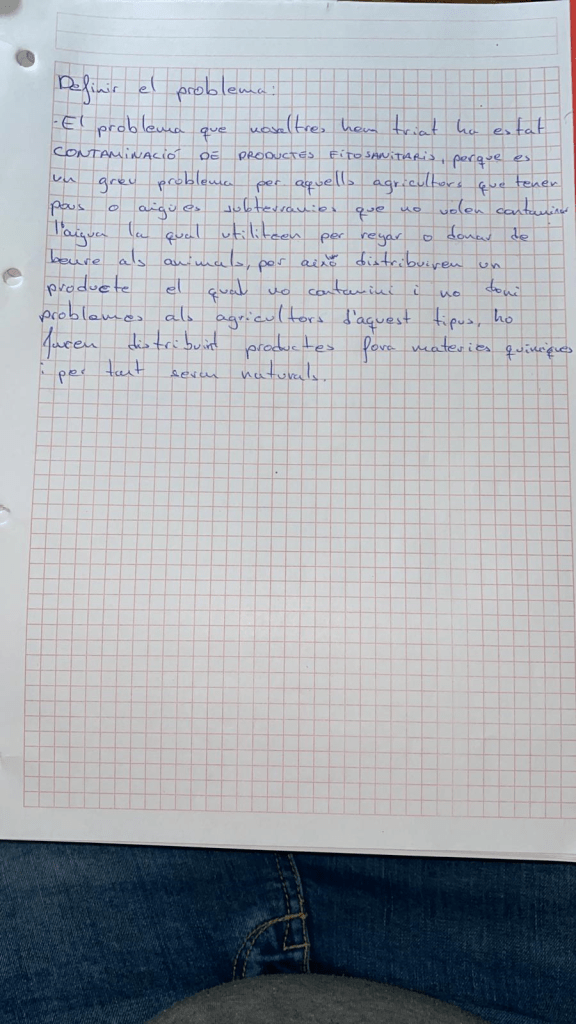 Definir el problema:
-El problema que nosaltres hem triat ha estat
CONTAMINACIÓ DE PRODUCTES FITOSANITARIS, perque es
un greu problema per aquells agricultors que tenen
pous o aigües subterranies que no volen contaminar
l'aigua la qual utilitzen per regar o donar de
beure als animals, per això distribuiren un
producte el qual no contamini i no doni
problemes als agricultors d'aquest tipus, ho
farem distribuint productes fora materies quimiques
i per tant seran naturals.